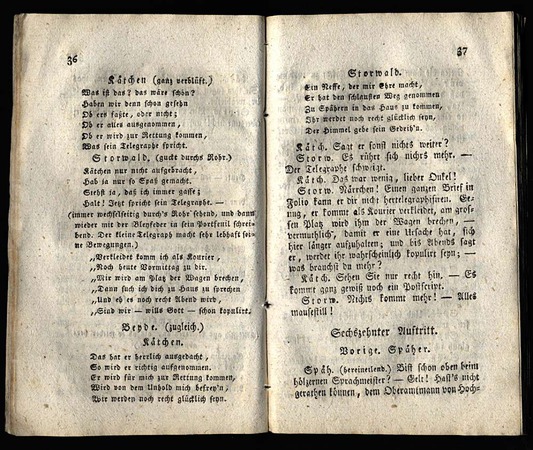 36
Kätchen (ganz verblüft.)
Was ist das? das wäre schön?
Haben wir denn schon gesehn
Ob ers faßte, oder nicht;
Ob er alles ausgenommen,
Ob er wird zur Rettung kommen,
Was sein Telegraphe spricht.
Storwald, (guckt durchs Rohr.)
Kätchen nur nicht aufgebracht,
Hab ja nur so Spaß gemacht.
Siehst ja, daß ich immer gaffe;
Halt! Jetzt spricht sein Telegraphe. —
(immer wechselseitig durch's Rohr sehend, und dann
wieder mit der Bleyfeder in sein Portfeuil schrei-
bend. Der kleine Telegraph macht sehr lebhaft sei-
ne Bewegungen.)
„Verkleidet komm ich als Kourier,
„Noch heute Vormittag zu dir.
„Mir wird am Platz der Wagen brechen,
„Dann such ich dich zu Haus zu sprechen
„Und eh es noch recht Abend wird,
„Sind wir — wills Gott — schon kopulirt.
Beyde. (zugleich.)
Kätchen.
Das hat er herrlich ausgedacht,
So wird er richtig aufgenommen.
Er wird für mich zur Rettung kommen,
Wird von dem Unhold mich befrey'n,
Wir werden noch recht glücklich seyn.
37
Storwald.
Ein Neffe, der mir Ehre macht,
Er hat den schlausten Weg genommen
Zu Spähern in das Haus zu kommen,
Ihr werdet noch recht glücklich seyn,
Der Himmel gebe sein Gedeih'n.
Kätch. Sagt er sonst nichts weiter?
Storw. Es rührt sich nichts mehr. —
Der Telegraphe schweigt.
Kätch. Das war wenig, lieber Onkel!
Storw. Närrchen! Einen ganzen Brief in
Folio kann er dir nicht hertelegraphiren. Ge-
nug, er komme als Kourier verkleidet, am gros-
sen Platz wird ihm der Wagen brechen, —
vermuthlich, damit er eine Ursache hat, sich
hier länger aufzuhalten; und bis Abends sagt
er, werdet ihr wahrscheinlich kopulirt seyn; —
was brauchst du mehr?
Kätch. Sehen Sie nur recht hin. — Es
kommt ganz gewiß noch ein Postscript.
Storw. Nichts kommt mehr! — Alles
mausestill!
Sechszehnter Auftritt.
Vorige. Späher.
Späh. (hereineilend.) Bist schon oben beim
hölzernen Sprachmeister? — Gelt! Hast's nicht
gerathen können, dem Oberamtmann von Hoch-